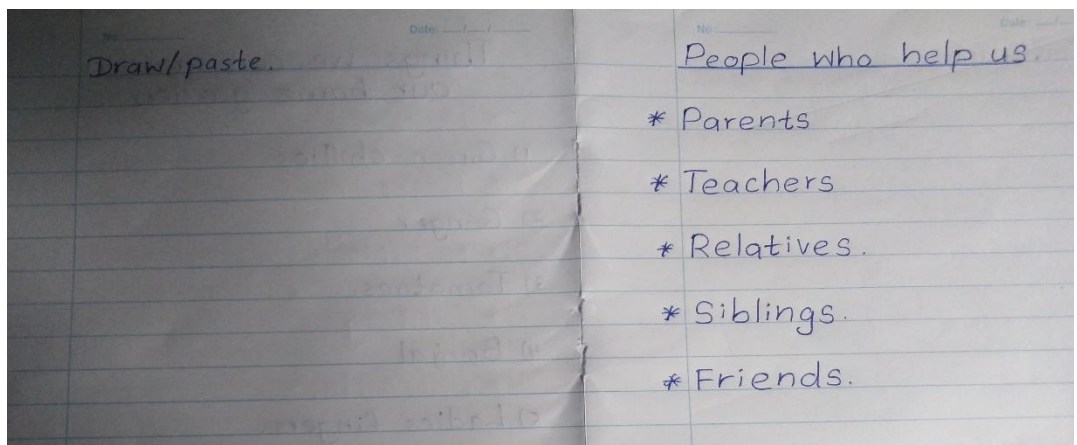 Date: __/__/__
Draw/paste.
No:
Date
People who help us.
* Parents
* Teachers
* Relatives.
* Siblings.
* Friends.